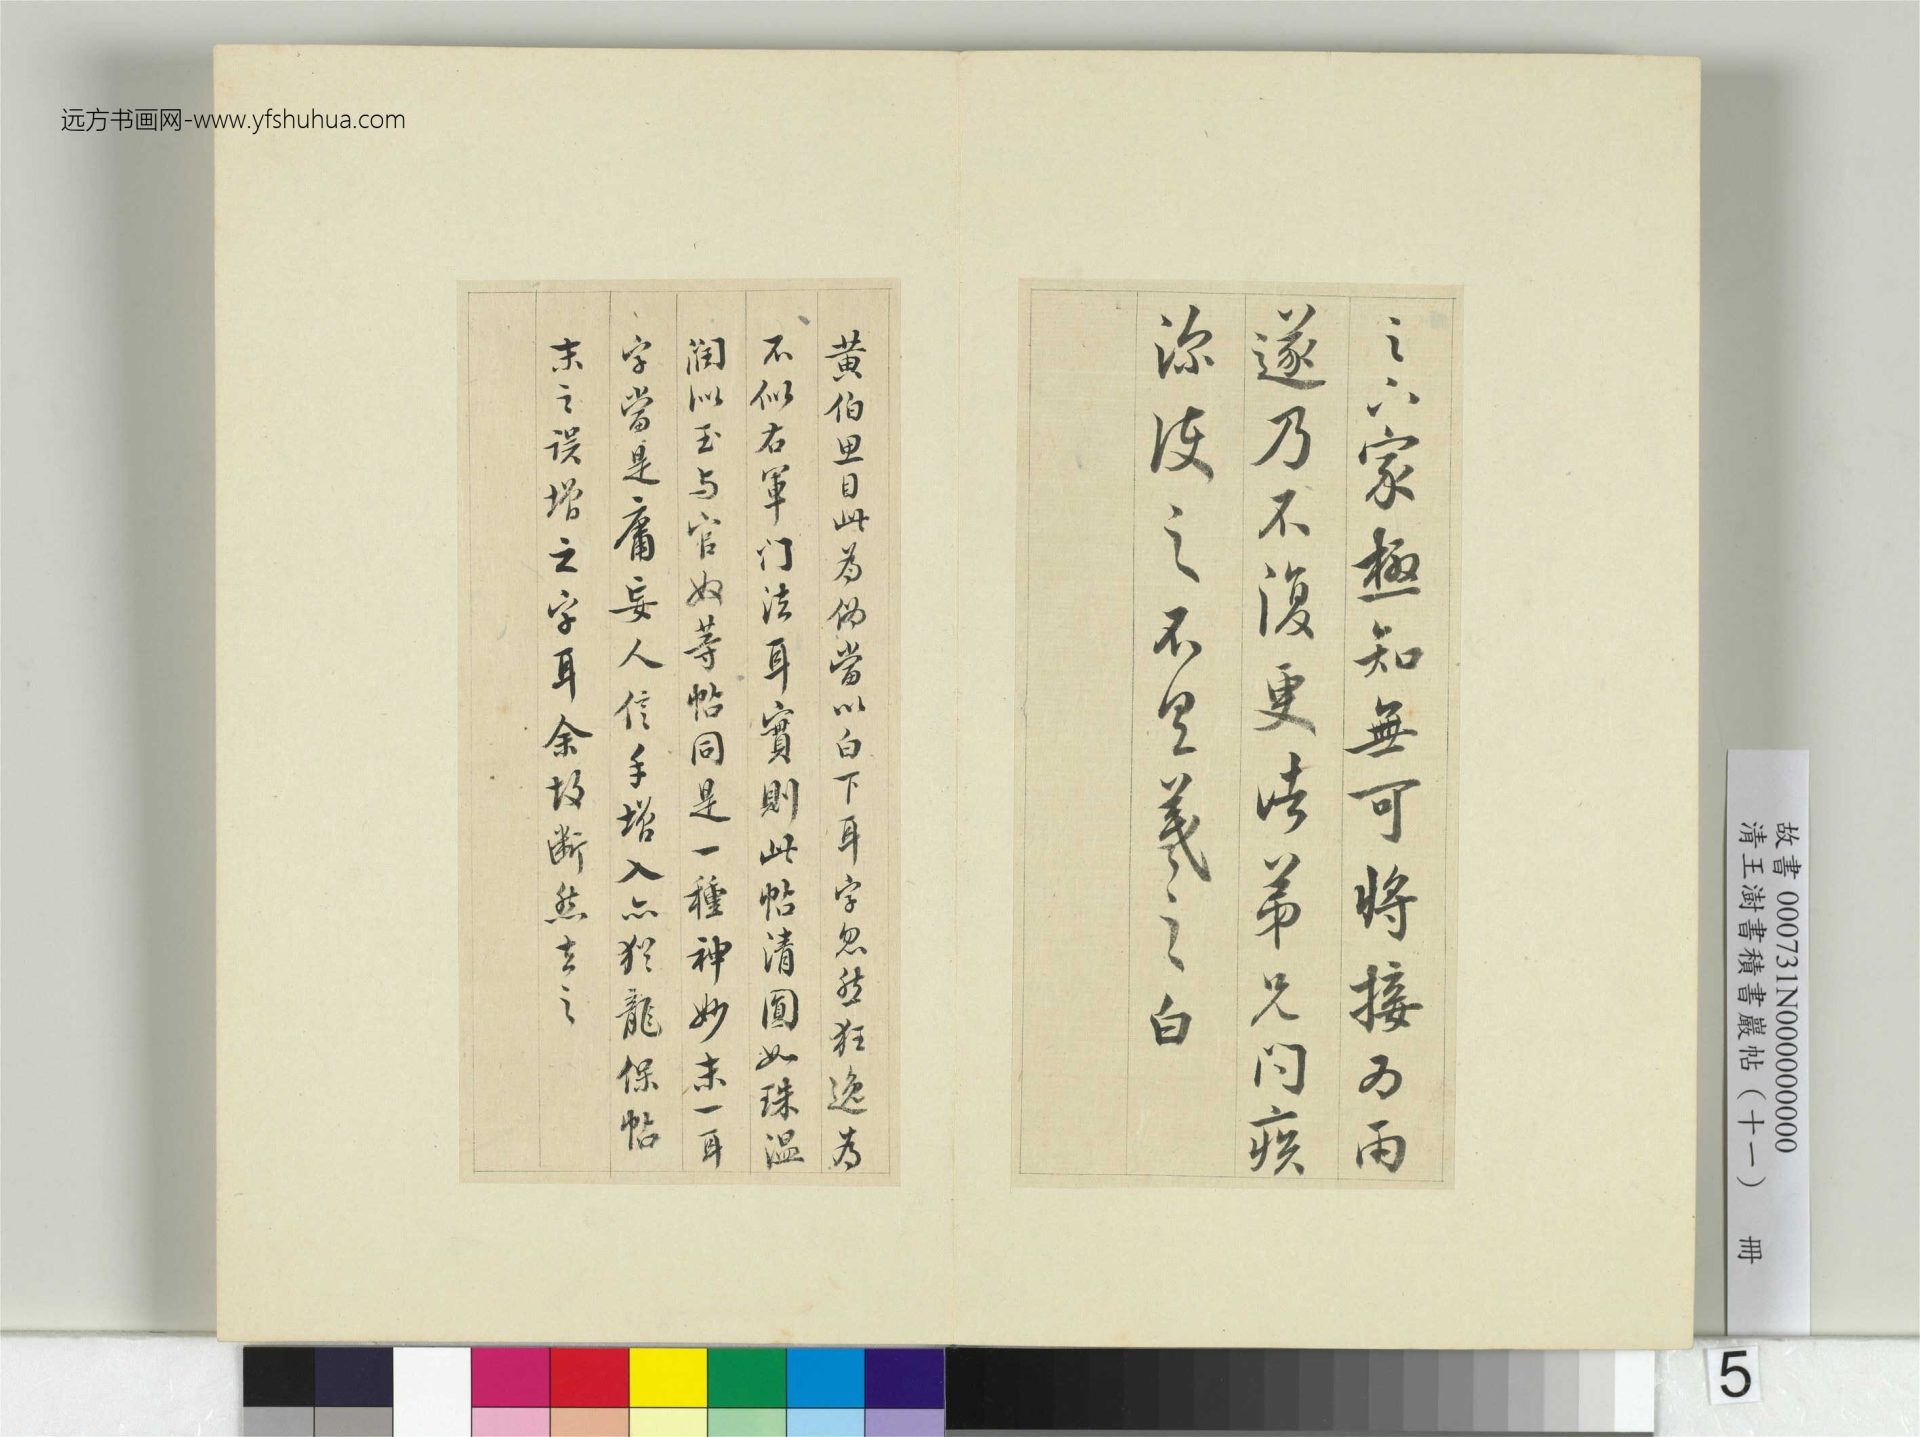 远方书画网-www.yfshuhua.com
之六家極知無可將接为雨
遂乃不復更諸弟兄问疾
深護之不具羲之白
黄伯思目此为偽當以白下耳字忽然狂逸为
不似右軍门法耳實則此帖清圓如珠温
润似玉与官奴等帖同是一種神妙末一耳
字當是庸妄人信手增入亦猶龍保帖
末之误增之字耳余故断然去之
故書000731N000000000
清王澍書積書巖帖（十一） 冊
5